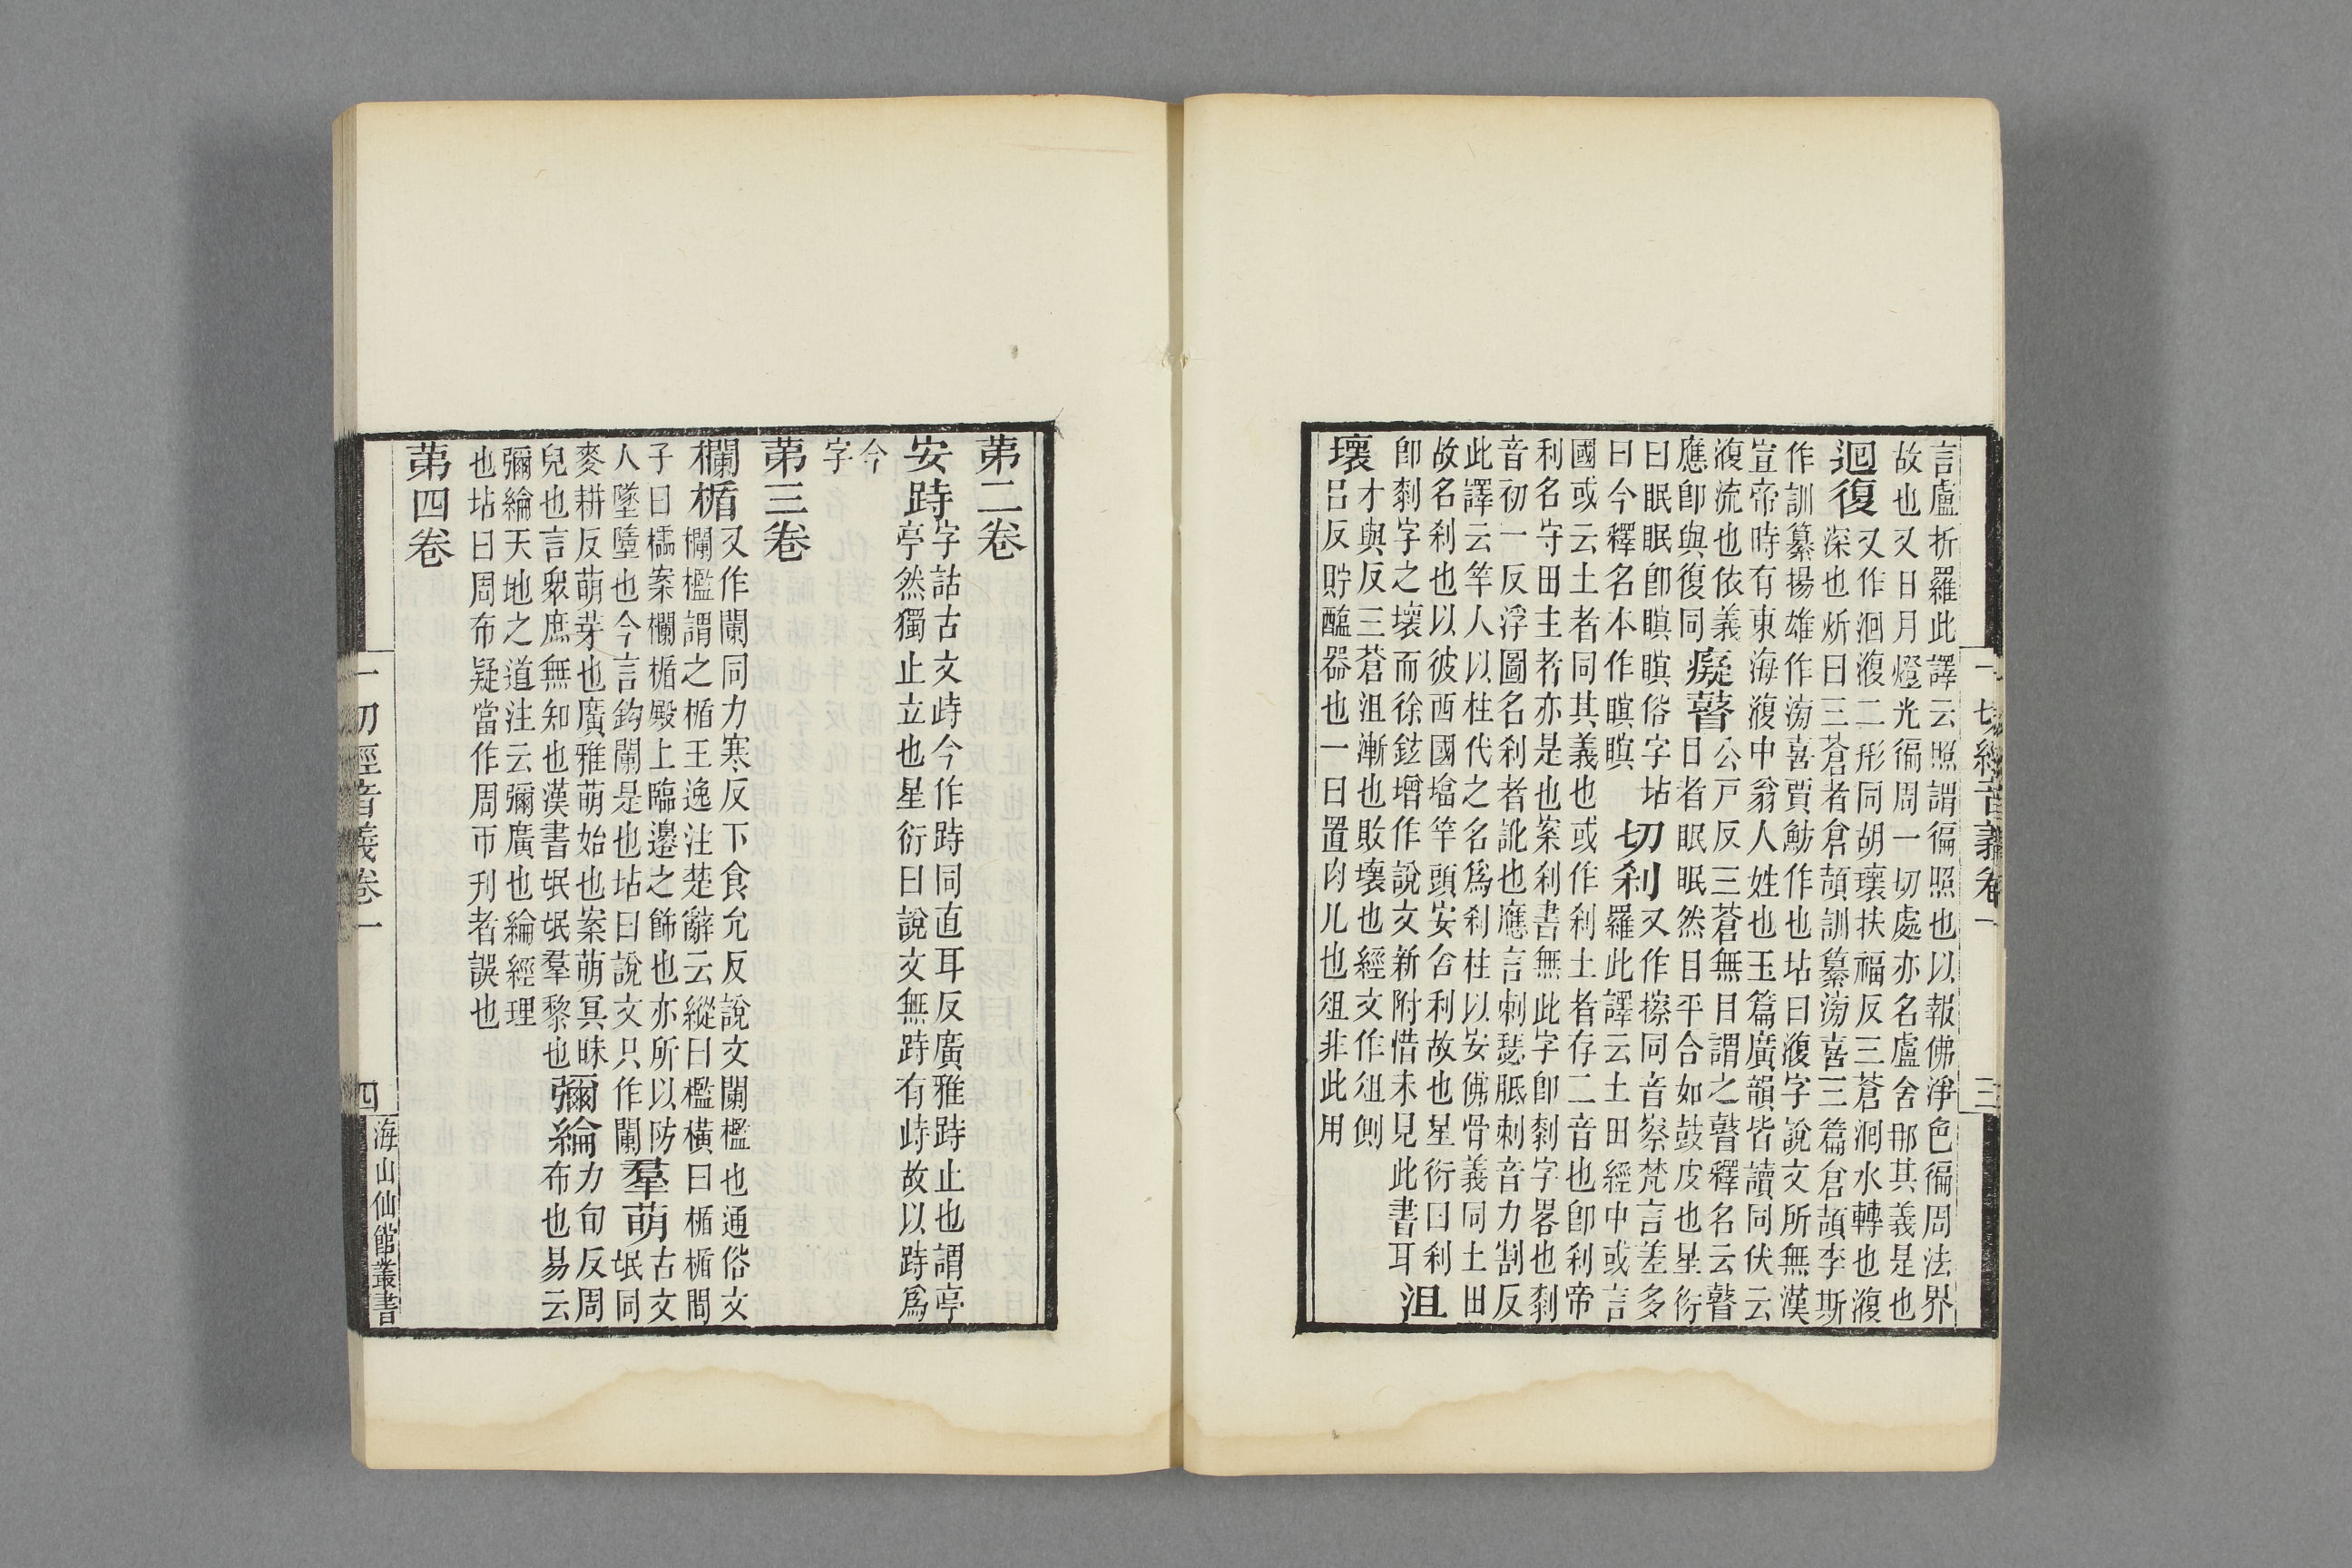 一切經音義卷一
三
言盧折羅此譯云照謂徧照也以報佛淨色徧周法界
故也又日月燈光徧周一切處亦名盧舍那其義是也
迴復
又作洄澓二形同胡瓌扶福反三蒼洄水轉也澓
深也炘曰三蒼者倉頡訓纂滂喜三篇倉頡李斯
作訓纂揚雄作滂喜賈魴作也坫曰澓字說文所無漢
宣帝時有東海澓中翁人姓也玉篇廣韻皆讀同伏云
澓流也依義
應卽與復同
癡瞽
公戸反三蒼無目謂之瞽釋名云瞽
目者眠眠然目平合如鼓皮也星衍
曰眠眠卽瞑瞑俗字坫
曰今釋名本作瞑瞑
切刹
又作擦同音察梵言差多
羅此譯云土田經中或言
國或云土者同其義也或作刹土者存二音也卽刹帝
利名守田主者亦是也案刹書無此字卽㓼字畧也㓼
音初一反浮圖名刹者訛也應言剌瑟胝剌音力割反
此譯云竿人以柱代之名爲刹柱以安佛骨義同土田
故名刹也以彼西國塔竿頭安舍利故也星衍曰刹
卽㓼字之壞而徐鉉增作說文新附惜未見此書耳
沮
壞
才與反三蒼沮漸也敗壞也經文作俎側
呂反貯醢器也一曰置肉几也俎非此用
苐二卷
安跱
字詁古文峙今作跱同直耳反廣雅跱止也謂亭
亭然獨止立也星衍曰說文無跱有峙故以跱爲
今
字
苐三卷
欄楯
又作闌同力寒反下食允反說文闌檻也通俗文
欄檻謂之楯王逸注楚辭云縱曰檻橫曰楯楯間
子曰櫺案欄楯殿上臨邊之飾也亦所以防
人墜墮也今言鈎闌是也坫曰說文只作闌
羣萌
古文
氓同
麥耕反萌芽也廣雅萌始也案萌冥昧
皃也言衆庶無知也漢書氓氓羣黎也
彌綸
力旬反周
布也易云
彌綸天地之道注云彌廣也綸經理
也坫曰周布疑當作周帀刋者誤也
苐四卷
一切經音義卷一
四
海山仙館叢書